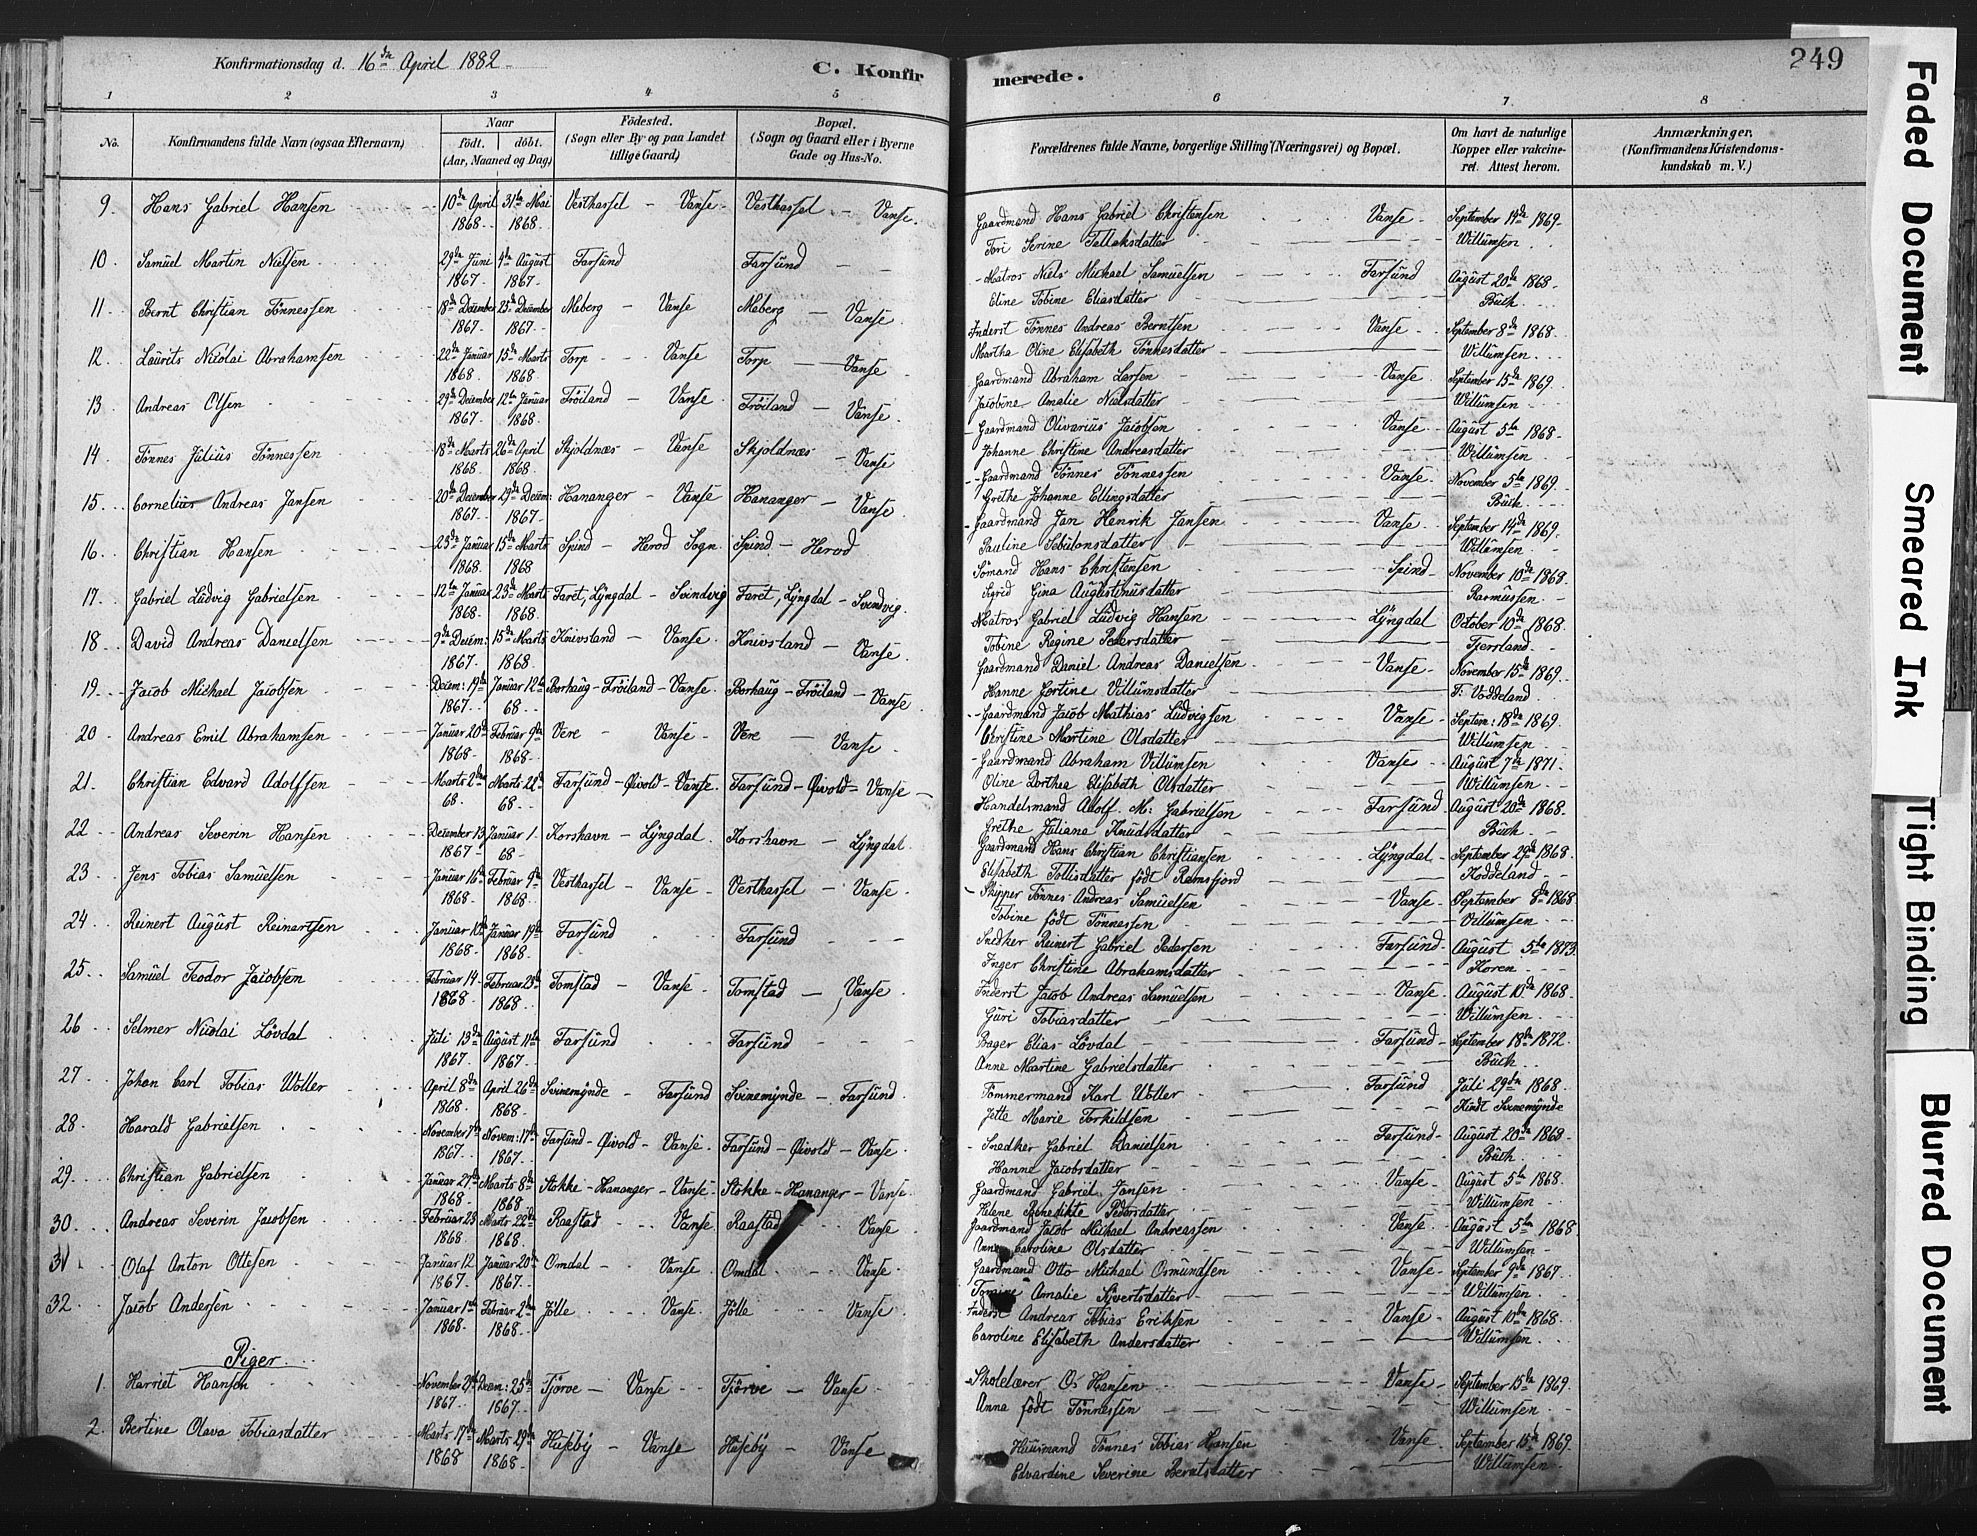 Konfirmationsdag d. 16de April 1882
C. Konfirmerede.
249
1 2 3 4 5 6 7 8
No. Konfirmandens fulde Navn (ogsaa Efternavn) Naar født. døbt. (Aar, Maaned og Dag) Födested. (Sogn eller By og paa Landet tillige Gaard) Bopæl. (Sogn og Gaard eller i Byerne Gade og Hus-No. Forældrenes fulde Navne, borgerlige Stilling (Næringsvei) og Bopæl. Om havt de naturlige Kopper eller vakcineret. Attest herom. Anmærkninger. (Konfirmandens Kristendomskundskab m. V.)
9. Hans Gabriel Hansen 10de April 31te Mai Vesthassel - Vanse - Vesthassel - Vanse. Gaardmand Hans Gabriel Christensen Vanse - September 14de 1869.
1868 1868. Tori Serine Tallaksdatter Willumsen
10. Samuel Martin Nilsen 29de Juni 4de August Farsund Farsund Matros Niels Michael Samuelsen Farsund August 20de 1868.
1867. 1867. Eline Tobine Eliasdatter Buch
11. Bernt Christian Tönnessen 18de December 25de December Meberg - Vanse Meberg - Vanse. Inderst Tönnes Andreas Berntsen Vanse. September 8de 1868.
1867. 1867. Martha Oline Elisabeth Tönnesdatter Willumsen
12. Laurits Nicolai Abrahamsen 22de Januar 15de Marts Torp - Vanse Torp - Vanse Gaardmand Abraham Larsen Vanse September 15de 1869.
1868. 1868 Jacobine Amalie Nielsdatter Willumsen
13. Andreas Olsen 29de December 12te Januar Fröiland - Vanse. Fröiland - Vanse. Gaardmand Olivarius Jacobsen Vanse August 5te 1868.
1867. 1868. Johanne Christine Andreasdatter Willumsen
14. Tönnes Julius Tönnessen 18de Marts 26de April Skjoldnæs - Vanse Skjoldnæs - Vanse Gaardmand Tönnes Tönnessen Vanse. November 5te 1869.
1868 1868. Grethe Johanne Ellingsdatter Buch
15. Cornelius Andreas Jansen 20de December 29de Decem: Hananger - Vanse Hananger - Vanse. Gaardmand Jan Henrik Jansen Vanse September 14de 1869.
1867. 1867. Pauline Sebulonsdatter Willumsen
16. Christian Hansen 25de Januar 15de Marts Spind - Herod Sogn. Spind - Herod Sömand Hans Christensen Spind - November 10de 1868.
1868. 1868 Sigrid Gina Augustinusdatter Rasmussen
17. Gabriel Ludvig Gabrielsen 12te Januar 23de Marts Faret, Lyngdal - Svindvig Faret, Lyngdal - Svindvig. Matros Gabriel Ludvig Hansen Lyngdal October 10de 1868.
1868. 1868. Tobine Regine Pedersdatter Fjerrland
18. David Andreas Danielsen 9de Decem: 15de Marts Knivsland - Vanse. Knivsland - Vanse. Gaardmand Daniel Andreas Danielsen Vanse - November 15de 1869.
1867. 1868. Hanne Gortine Villumsdatter T: Voddeland
19. Jacob Michael Jacobsen Decem: 19de Januar 12te Borhaug - Fröiland - Vanse. Borhaug - Fröiland - Vanse Gaardmand Jacob Mathias Ludvigsen Vanse - Septem: 18de 1869.
1867. 68. Christine Martine Olsdatter Willumsen
20. Andreas Emil Abrahamsen Januar 20de Februar 9de Vere - Vanse - Vere - Vanse. Gaardmand Abraham Villumsen Vanse August 7de 1871.
1868. 1868. Oline Dorthea Elisabeth Olsdatter Willumsen
21. Christian Edvard Adolfsen Marts 2den Marts 22de Farsund - Øivold - Vanse. Farsund - Øivold - Vanse Handelsmand Adolf M: Gabrielsen Farsund August 20de 1868.
68. 68. Grethe Juliane Knudsdatter Buch
22. Andreas Severin Hansen December 13 Januar 1. Korshavn - Lyngdal. Korshavn - Lyngdal. Gaardmand Hans Christian Christiansen Lyngdal - September 29de 1868.
1867 68. Elisabeth Tollisdatter födt Ramsfjord Hoddeland
23. Jens Tobias Samuelsen Januar 16de Februar 9de Vesthassel - Vanse. Vesthassel - Vanse. Skipper Tönnes Andreas Samuelsen Vanse - September 8de 1868
1868. 1868. Tobine födt Tönnessen Villumsen
24. Reinert August Reinartsen Januar 10de Januar 19de Farsund Farsund Snedker Reinert Gabriel Pedersen Farsund - August 5te 1873.
1868. 1868. Inger Christine Abrahamsdatter Koren
25. Samuel Teodor Jacobsen Februar 14 Februar 23de Tomstad - Vanse. Tomstad - Vanse. Inderst Jacob Andreas Samuelsen Vanse. August 10de 1868.
1868 1868. Guri Tobiasdatter Willumsen
26. Selmer Nicolai Lövdal Juli 13de August 11te Farsund Farsund Bager Elias Lövdal Farsund - September 18de 1872.
1867. 1867. Anne Martine Gabrielsdatter Buch
27. Johan Carl Tobias Woller April 8de April 26de Svinemynde - Farsund Svinemynde - Farsund. Tömmermand Karl Woller Farsund Juli 29de 1868.
1868. 1868 Jette Marie Torkildsen Kindt Svinemynde
28. Harald Gabrielsen November 7de Novem: 17de Farsund - Øivold - Vanse. Farsund - Øivold - Vanse. Snedker Gabriel Danielsen Farsund - August 20de 1868
1867. 1867. Hanne Jacobsdatter Buch
29. Christian Gabrielsen Januar 27de Marts 8de Stokke - Hananger - Vanse. Stokke - Hananger - Vanse. Gaardmand Gabriel Jansen Vanse - August 5te 1868.
1868. 1868 Helene Benedikte Pedersdatter Willumsen
30. Andreas Severin Jacobsen Februar 23 Marts 22de Raastad - Vanse Raastad Vanse Gaardmand Jacob Michael Andreassen Vanse. August 5te 1868
1868. 1868. Anne Caroline Olsdatter Willumsen
31. Olaf Anton Ottesen Januar 12. Januar 20de Omdal - Vanse. Omdal Vanse. Gaardmand Otto Michael Osmundsen Vanse - September 9de 1867.
1867. 1867. Amalie Sivertsdatter Willumsen
32. Jacob Andersen Januar 1ste Februar 2den Jölle Vanse. Jölle Vanse Inderst Andreas Tobias Eriksen Vanse - August 10de 1868.
1868. 1868. Caroline Elisabeth Andersdatter Willumsen
Piger.
1. Harriet Hanson November 21de Decem: 25de Tjörve - Vanse Tjörve - Vanse. Skolelærer O: Hansen Vanse - September 15de 1869.
1867. 1867. Anna födt Tönnessen Willumsen
2. Bertine Olava Tobiasdatter Marts 17de Marts 29de Huseby - Vanse Huseby - Vanse Huusmand Tönnes Tobias Hansen Vanse. September 15de 1869.
1868 1868. Edvardine Severine Berntsdatter Willumsen
Faded Document
Smeared Ink
Tight Binding
Blurred Document